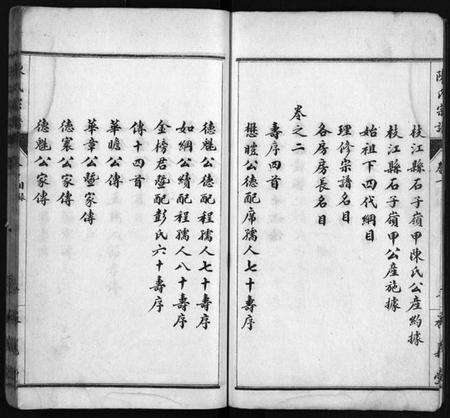 陳氏宗譜
卷一
枝江縣石子嶺甲陳氏公產約據
枝江縣石子嶺甲公產施據
始祖下四代綱目
理修宗譜名目
各房房長名目
卷之二
壽序四首
懋暶公德配席孺人七十壽序
德魁公德配程孺人七十壽序
如綱公續配程孺人八十壽序
金榜君暨配彭氏六十壽序
傳十四首
華瞻公傳
華章公暨家傳
德寰公家傳
德魁公家傳
目錄